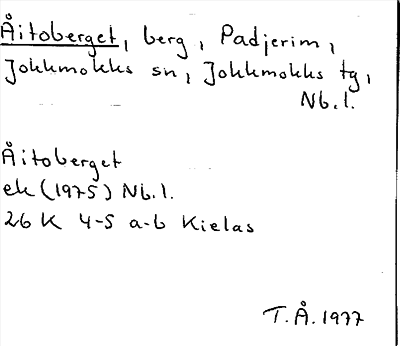 Åitoberget, berg, Padjerim,
Jokkmokks sn, Jokkmokks tg,
Nb.l.
Åitoberget
ek (1975) Nb.l.
26 K 4-5 a-b Kielas
T.Å. 1977